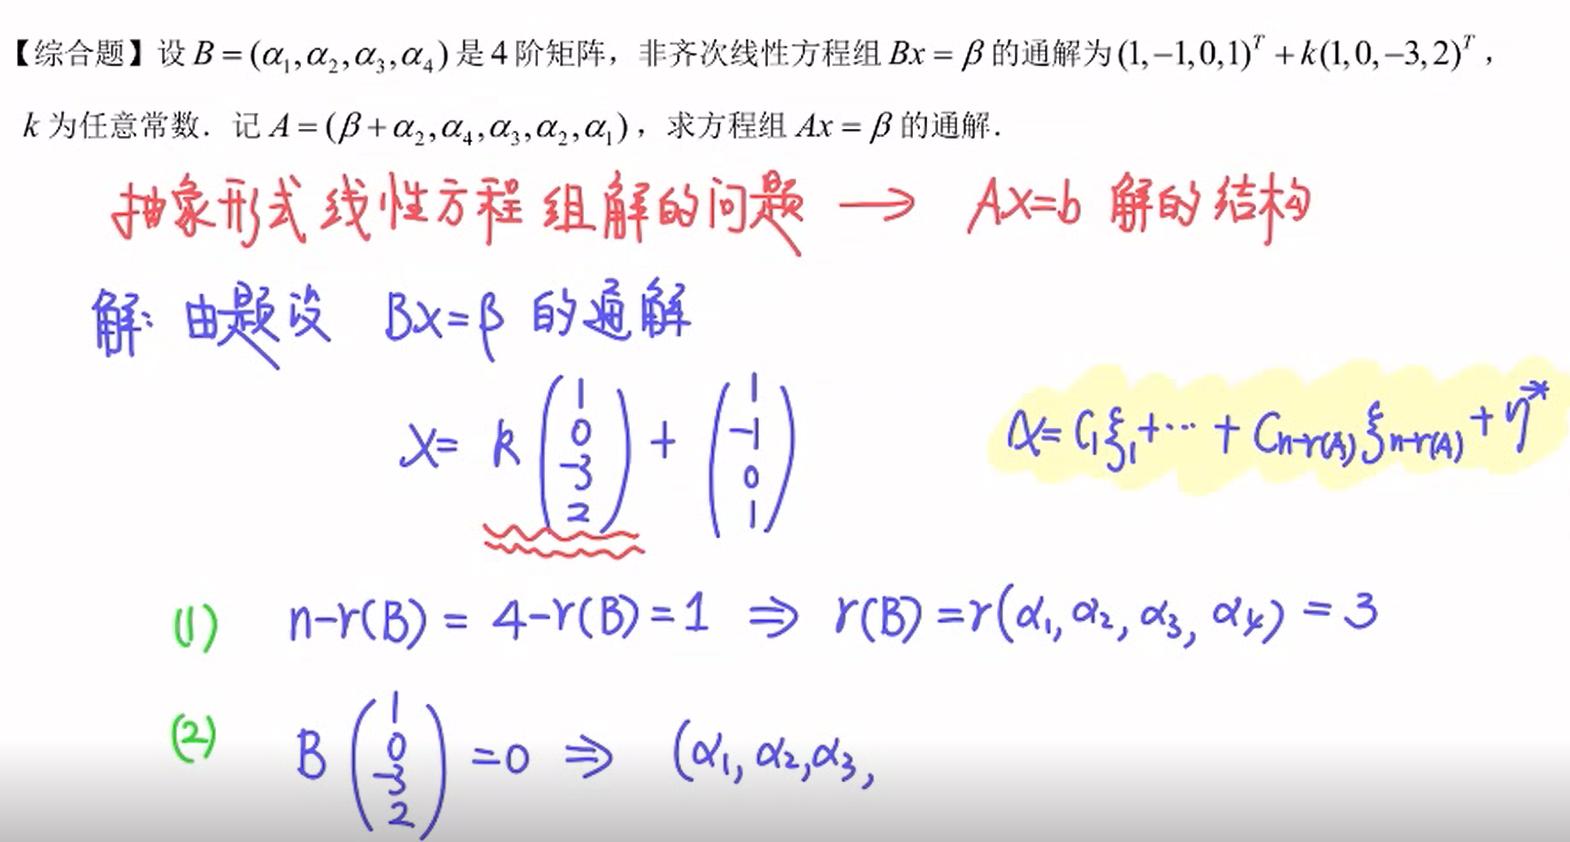 【综合题】设 B = (α₁,α₂,α₃,α₄) 是 4 阶矩阵，非齐次线性方程组 Bx = β 的通解为 (1,−1,0,1)ᵀ + k(1,0,−3,2)ᵀ，
k 为任意常数．记 A = (β + α₂,α₄,α₃,α₂,α₁)，求方程组 Ax = β 的通解．
抽象形式线性方程组解的问题 → AX=b 解的结构
解: 由题设 BX=β 的通解
X= k (1 0 -3 2) + (1 -1 0 1)
X= C₁ξ₁+⋯+Cn-r(A)ξn-r(A)+η*
(1) n-r(B) = 4-r(B) = 1 ⇒ r(B) = r(α₁, α₂, α₃, α₄) = 3
(2) B (1 0 -3 2) =0 ⇒ (α₁, α₂, α₃,